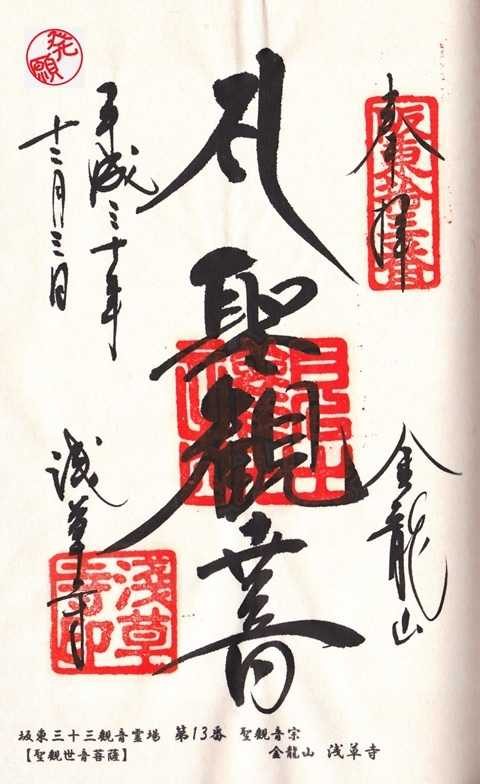 奉拝
坂東拾三番
金龍山
聖觀世音
平成三十年
十二月三日
浅草寺
淺草寺印
発願
坂東三十三観音霊場 第13番 聖観音宗
【聖観世音菩薩】 金龍山 浅草寺